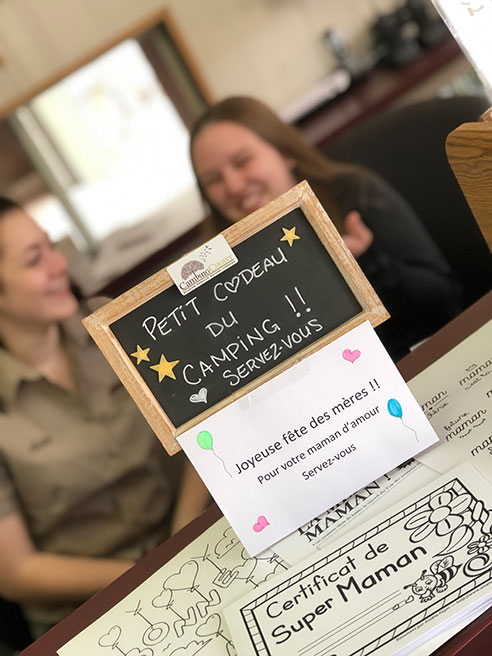 CAMPING
PETIT CADEAU
DU
CAMPING !!
SERVEZ-VOUS
Joyeuse fête des mères !!
Pour votre maman d'amour
Servez-vous
MAMAN
Certificat de
Super Maman
BONN
maman
maman
future
maman
maman